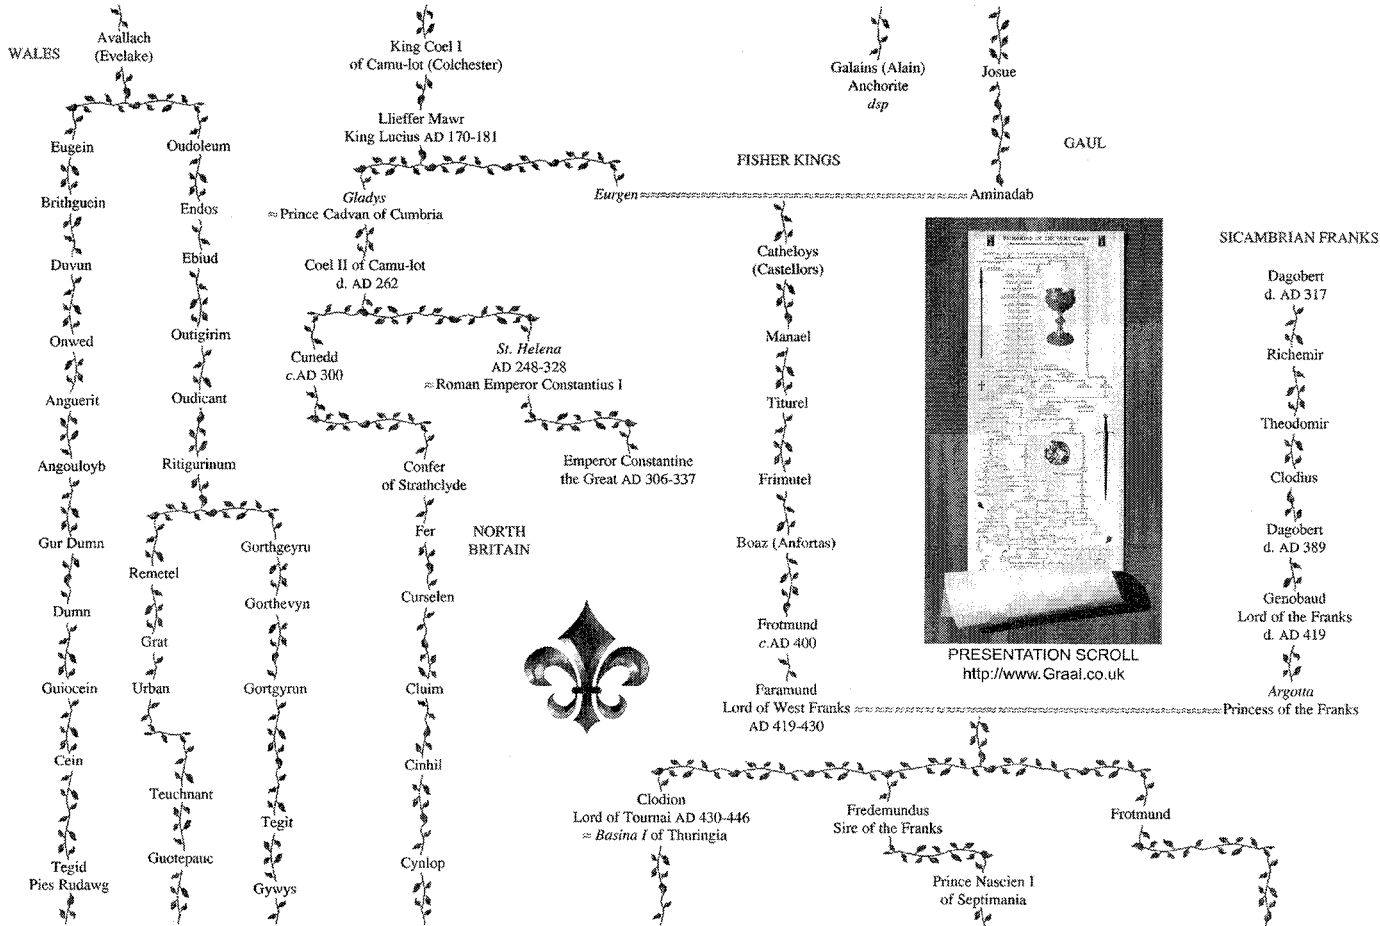 WALES
Avallach
(Evelake)
Eugein
Brithguein
Duvun
Onwed
Anguerit
Angouloyb
Gur Dumn
Dumn
Guiocein
Cein
Tegid
Pies Rudawg
Oudoleum
Endos
Ebiud
Outigirim
Oudicant
Ritigurinum
Remetel
Grat
Urban
Teuchnant
Guotepauc
Gorthgeyru
Gorthevyn
Gortgyrun
Tegit
Gywys
King Coel I
of Camu-lot (Colchester)
Llieffer Mawr
King Lucius AD 170-181
Gladys
≈ Prince Cadvan of Cumbria
Coel II of Camu-lot
d. AD 262
Cunedd
c.AD 300
St. Helena
AD 248-328
≈ Roman Emperor Constantius I
Emperor Constantine
the Great AD 306-337
Confer
of Strathclyde
Fer
NORTH
BRITAIN
Curselen
Cluim
Cinhil
Cynlop
Galains (Alain)
Anchorite
dsp
Josue
GAUL
FISHER KINGS
Eurgen
Aminadab
Catheloys
(Castellors)
Manael
Titurel
Frimutel
Boaz (Anfortas)
Frotmund
c.AD 400
Faramund
Lord of West Franks
AD 419-430
PRESENTATION SCROLL
http://www.Graal.co.uk
SICAMBRIAN FRANKS
Dagobert
d. AD 317
Richemir
Theodomir
Clodius
Dagobert
d. AD 389
Genobaud
Lord of the Franks
d. AD 419
Argotta
Princess of the Franks
Clodion
Lord of Tournai AD 430-446
≈ Basina I of Thuringia
Fredemundus
Sire of the Franks
Prince Nascien I
of Septimania
Frotmund